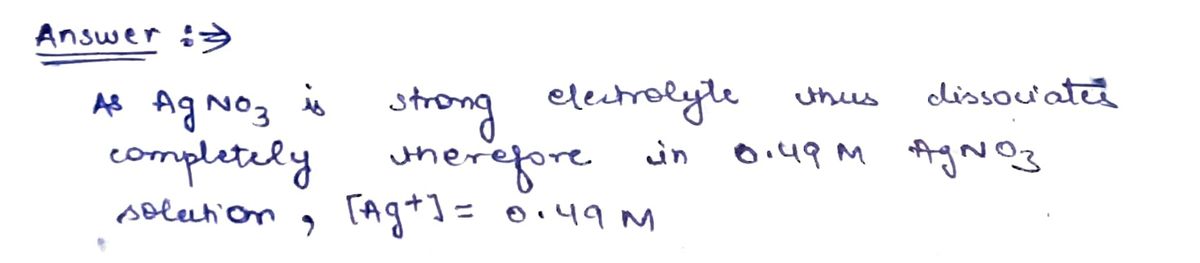 Answer :⇒
As AgNO3 is strong electrolyte thus dissociates
completely therefore in 0.49 M AgNO3
solution, [Ag+] = 0.49 M